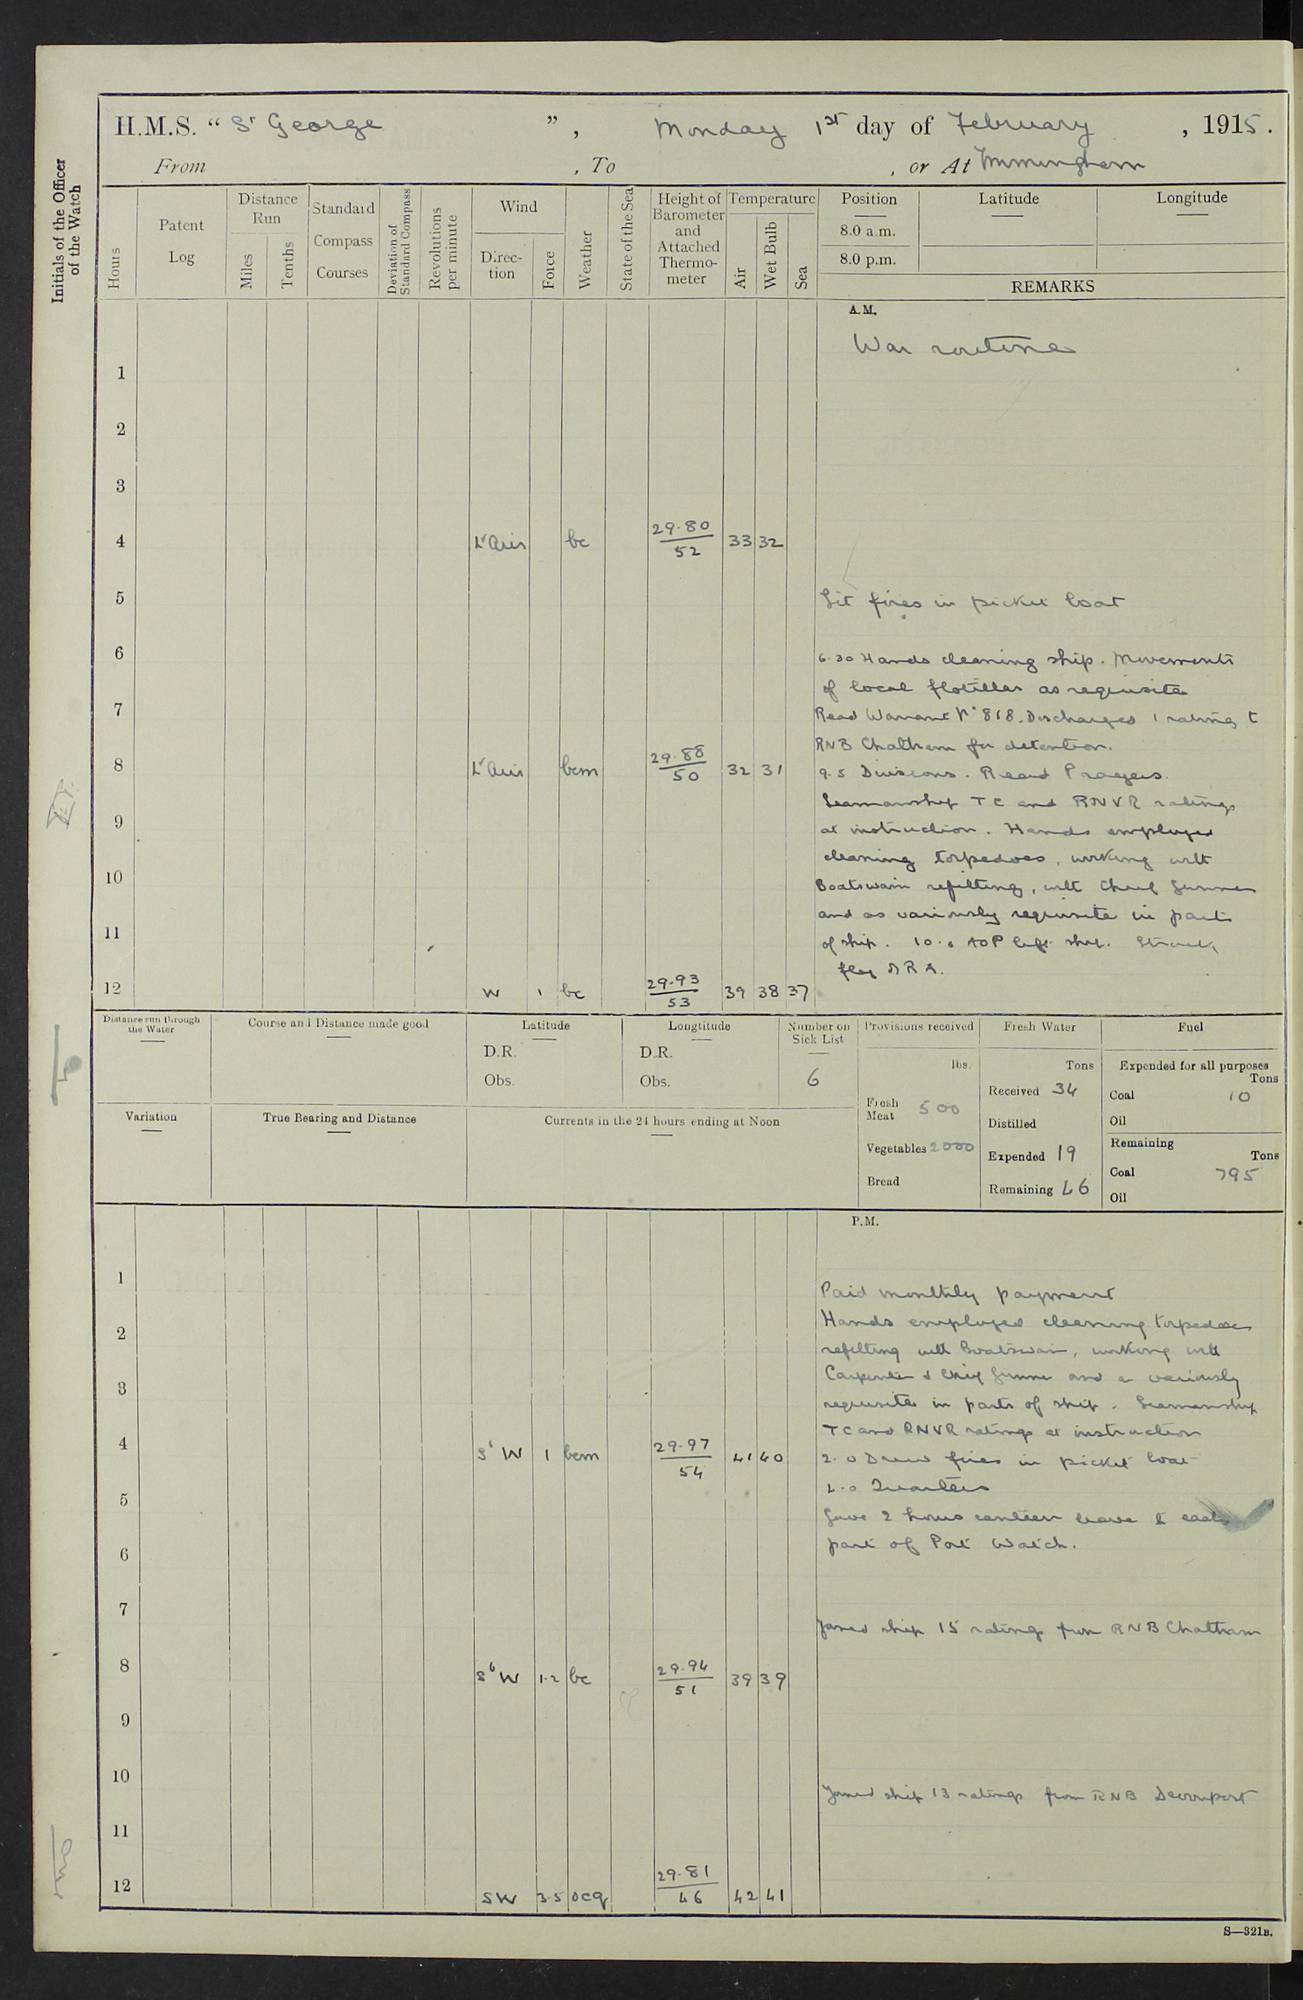 H.M.S. “ St George ”, Monday 1st day of February , 1915.
From , To , or At Immingham
Initials of the Officer of the Watch
Hours
Patent Log
Distance Run
Miles
Tenths
Standard Compass Courses
Deviation of Standard Compass
Revolutions per minute
Wind
Direc-tion
Force
Weather
State of the Sea
Height of Barometer and Attached Thermo-meter
Temperature
Air
Wet Bulb
Sea
Position
8.0 a.m.
8.0 p.m.
Latitude
Longitude
REMARKS
A.M.
War routine
1
2
3
4 Lt Airs bc 29.80 52 33 32
5 Lit fires in picket boat
6 6.30 Hands cleaning ship. Movements
of local flotillas as requisite
7 Read Warrant No 818. Discharged 1 rating to
RNB Chatham for detention.
8 Lt Airs bcm 29.88 50 32 31
9.5 Divisions. Read Prayers.
Seamanship TC and RNVR ratings
9 at instruction. Hands employed
cleaning torpedoes, working with
10 Boatswain refitting, with Chief Gunner
and as variously requisite in parts
11 of ship. 10.0 AOP left ship. Struck
flag of RA.
12 W 1 bc 29.93 53 39 38 37
Distance run through the Water
Course and Distance made good
Latitude
D.R.
Obs.
Longtitude
D.R.
Obs.
Number on Sick List
6
Provisions received
lbs.
Fresh Meat 500
Vegetables 2000
Bread
Fresh Water
Tons
Received 34
Distilled
Expended 19
Remaining 46
Fuel
Expended for all purposes
Tons
Coal 10
Oil
Remaining
Tons
Coal 795
Oil
Variation
True Bearing and Distance
Currents in the 24 hours ending at Noon
P.M.
1 Paid monthly payment
2 Hands employed cleaning torpedoes
refitting with Boatswain, working with
3 Carpenter & Chief Gunner and as variously
requisite in parts of ship. Seamanship
4 TC and RNVR ratings at instruction
St W 1 bcm 29.97 54 41 40
2.0 Drew fires in picket boat
4.0 Quarters
5 Gave 2 hours canteen leave to each
6 part of Port Watch.
7 Joined ship 15 ratings from RNB Chatham
8 SbW 1.2 bc 29.94 51 39 39
9
10 Joined ship 13 ratings from RNB Devonport
11
12 SW 3.5 ocq 29.81 46 42 41
S—321B.